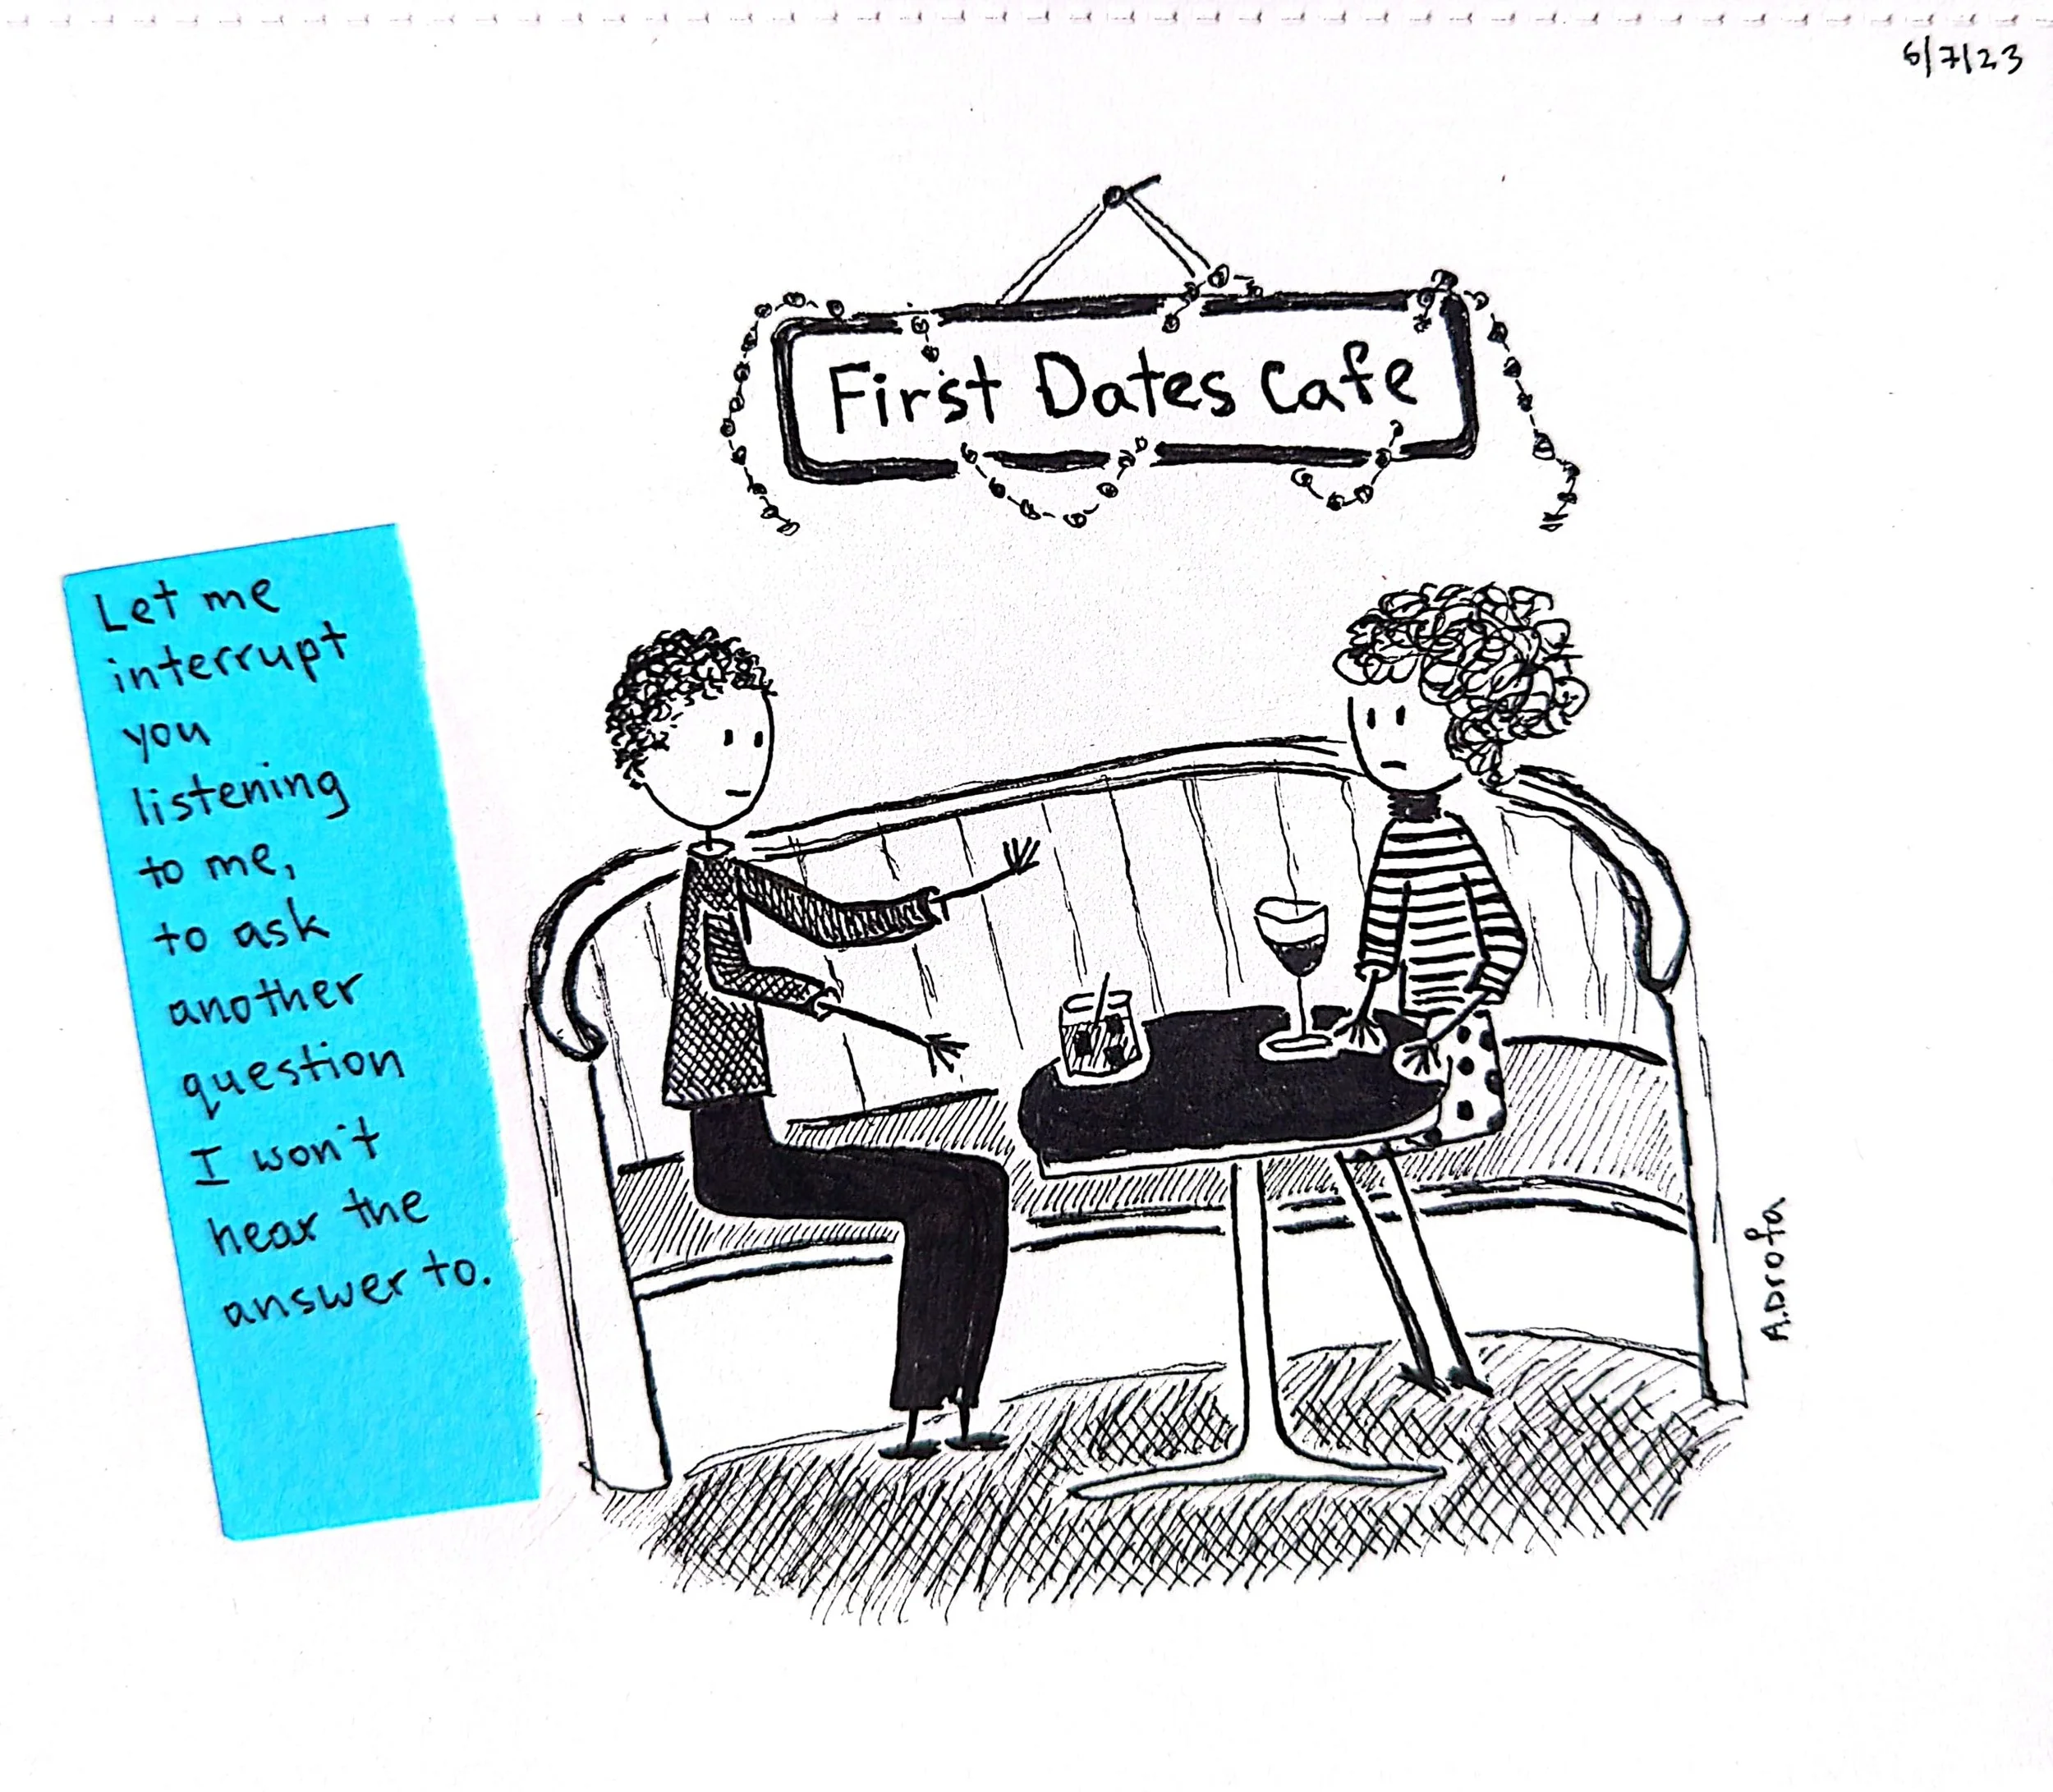 6/7/23
First Dates Cafe
Let me
interrupt
you
listening
to me,
to ask
another
question
I won't
hear the
answer to.
A.Drofa